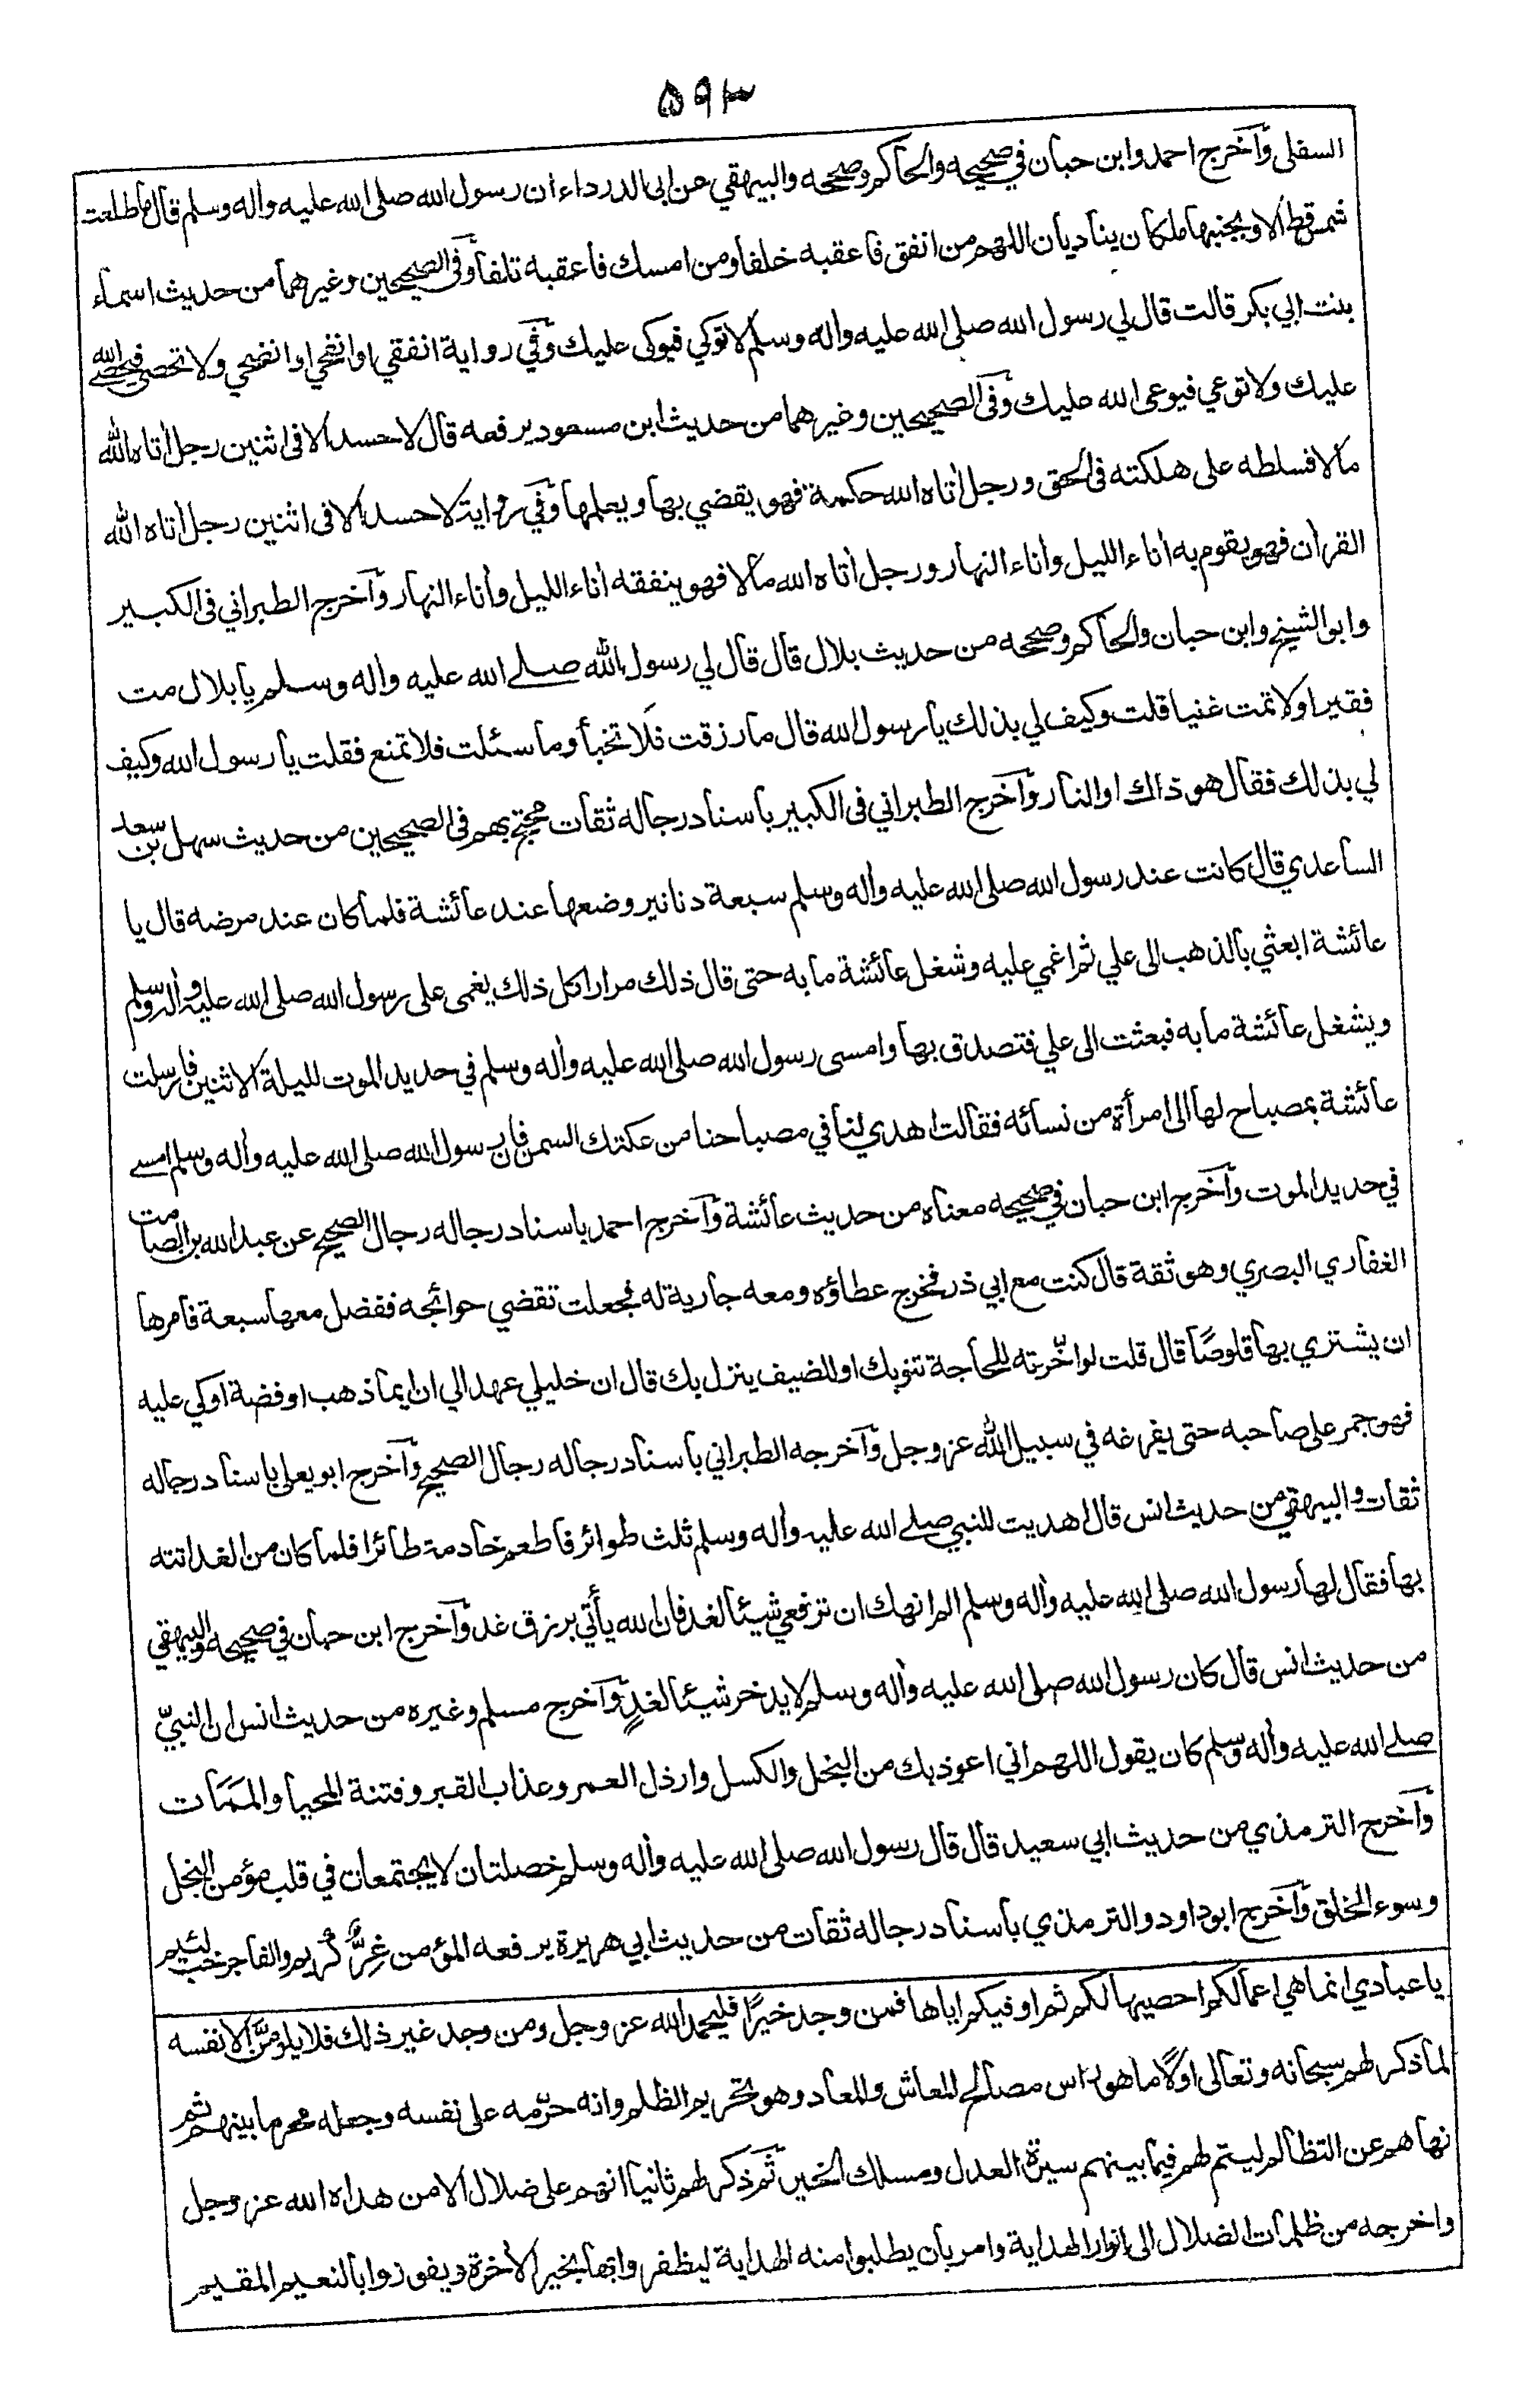 ۵۹۳
السفلى وآخرج احمد وابن حبان في صحيحه والحاكم وصححه والبيهقي عن ابى الدرداء ان رسول الله صلى الله عليه واله وسلم قال ما طلعت
شمس قط الا وبجنبيها ملكان يناديان اللهم من انفق فاعقبه خلفا ومن امسك فاعقبه تلفا وفى الصحيحين وغيرهما من حديث اسماء
بنت ابي بكر قالت قال لي رسول الله صلى الله عليه واله وسلم لا توكي فيوكى عليك وفي رواية انفقي او انفحي او انضحي ولا تحصي فيحصي الله
عليك ولا توعي فيوعى الله عليك وفى الصحيحين وغيرهما من حديث ابن مسعود يرفعه قال لا حسد الا فى اثنين رجل اتاه الله
مالا فسلطه على هلكته فى الحق ورجل اتاه الله حكمة فهو يقضي بها ويعلمها وفي رواية لا حسد الا فى اثنين رجل اتاه الله
القران فهو يقوم به اناء الليل واناء النهار ورجل اتاه الله مالا فهو ينفقه اناء الليل واناء النهار وآخرج الطبراني فى الكبير
وابو الشيخ وابن حبان والحاكم وصححه من حديث بلال قال قال لي رسول الله صلے الله عليه واله وسلم يا بلال مت
فقيرا ولا تمت غنيا قلت وكيف لي بذلك يا رسول الله قال ما رزقت فلا تخبأ وما سئلت فلا تمنع فقلت يا رسول الله وكيف
لي بذلك فقال هو ذاك او النار وآخرج الطبراني فى الكبير باسناد رجاله ثقات محتج بهم فى الصحيحين من حديث سهل بن سعد
الساعدي قال كانت عند رسول الله صلى الله عليه واله وسلم سبعة دنانير وضعها عند عائشة فلما كان عند مرضه قال يا
عائشة ابعثي بالذهب الى علي ثم اغمي عليه وشغل عائشة ما به حتى قال ذلك مرارا كل ذلك يغمى على رسول الله صلى الله عليه واله وسلم
ويشغل عائشة ما به فبعثت الى علي فتصدق بها وامسى رسول الله صلى الله عليه واله وسلم في حديد الموت لليلة الاثنين فارسلت
عائشة بمصباح لها الى امرأة من نسائه فقالت اهدي لنا في مصباحنا من عكتك السمن فان رسول الله صلى الله عليه واله وسلم امسے
في حديد الموت وآخرج ابن حبان في صحيحه معناه من حديث عائشة وآخرج احمد باسناد رجاله رجال الصحيح عن عبد الله بن الصامت
الغفاري البصري وهو ثقة قال كنت مع ابي ذر فخرج عطاؤه ومعه جارية له فجعلت تقضي حوائجه ففضل معها سبعة فامرها
ان يشتري بها قلوصًا قال قلت لو اخّرته للحاجة تنوبك او للضيف ينزل بك قال ان خليلي عهد الي ان ايما ذهب او فضة اوكي عليه
فهو جمر على صاحبه حتى يفرغه في سبيل الله عز وجل وآخرجه الطبراني باسناد رجاله رجال الصحيح وآخرج ابو يعلى باسناد رجاله
ثقات والبيهقي من حديث انس قال اهديت للنبي صلے الله عليه واله وسلم ثلث طوائر فاطعم خادمة طائرا فلما كان من الغد اتته
بها فقال لها رسول الله صلى الله عليه واله وسلم الم انهك ان ترفعي شيئا لغد فان الله يأتي برزق غد وآخرج ابن حبان في صحيحه والبيهقي
من حديث انس قال كان رسول الله صلى الله عليه واله وسلم لا يدخر شيئا لغدٍ وآخرج مسلم وغيره من حديث انس ان النبيّ
صلے الله عليه واله وسلم كان يقول اللهم اني اعوذ بك من البخل والكسل وارذل العمر وعذاب القبر وفتنة المحيا والممات
وآخرج الترمذي من حديث ابي سعيد قال قال رسول الله صلى الله عليه واله وسلم خصلتان لا يجتمعان في قلب مؤمن البخل
وسوء الخلق وآخرج ابو داود والترمذي باسناد رجاله ثقات من حديث ابي هريرة يرفعه المؤمن غِرٌّ كريم والفاجر خب لئيم
يا عبادي انما هي اعمالكم احصيها لكم ثم اوفيكم اياها فمن وجد خيرًا فليحمد الله عز وجل ومن وجد غير ذلك فلا يلومنَّ الا نفسه
لما ذكر لهم سبحانه وتعالى اولًا ما هو راس مصالح المعاش والمعاد وهو تحريم الظلم وانه حرّمه على نفسه وجعله محرما بينهم ثم
نهاهم عن التظالم ليستم لهم فيما بينهم سيرة العدل ومسلك الخير ثم ذكر لهم ثانيا انهم على ضلال الا من هداه الله عز وجل
واخرجه من ظلمات الضلال الى انوار الهداية وامر بان يطلبوا منه الهداية ليظفروا بها بخير الاخرة ويفوزوا بالنعيم المقيم